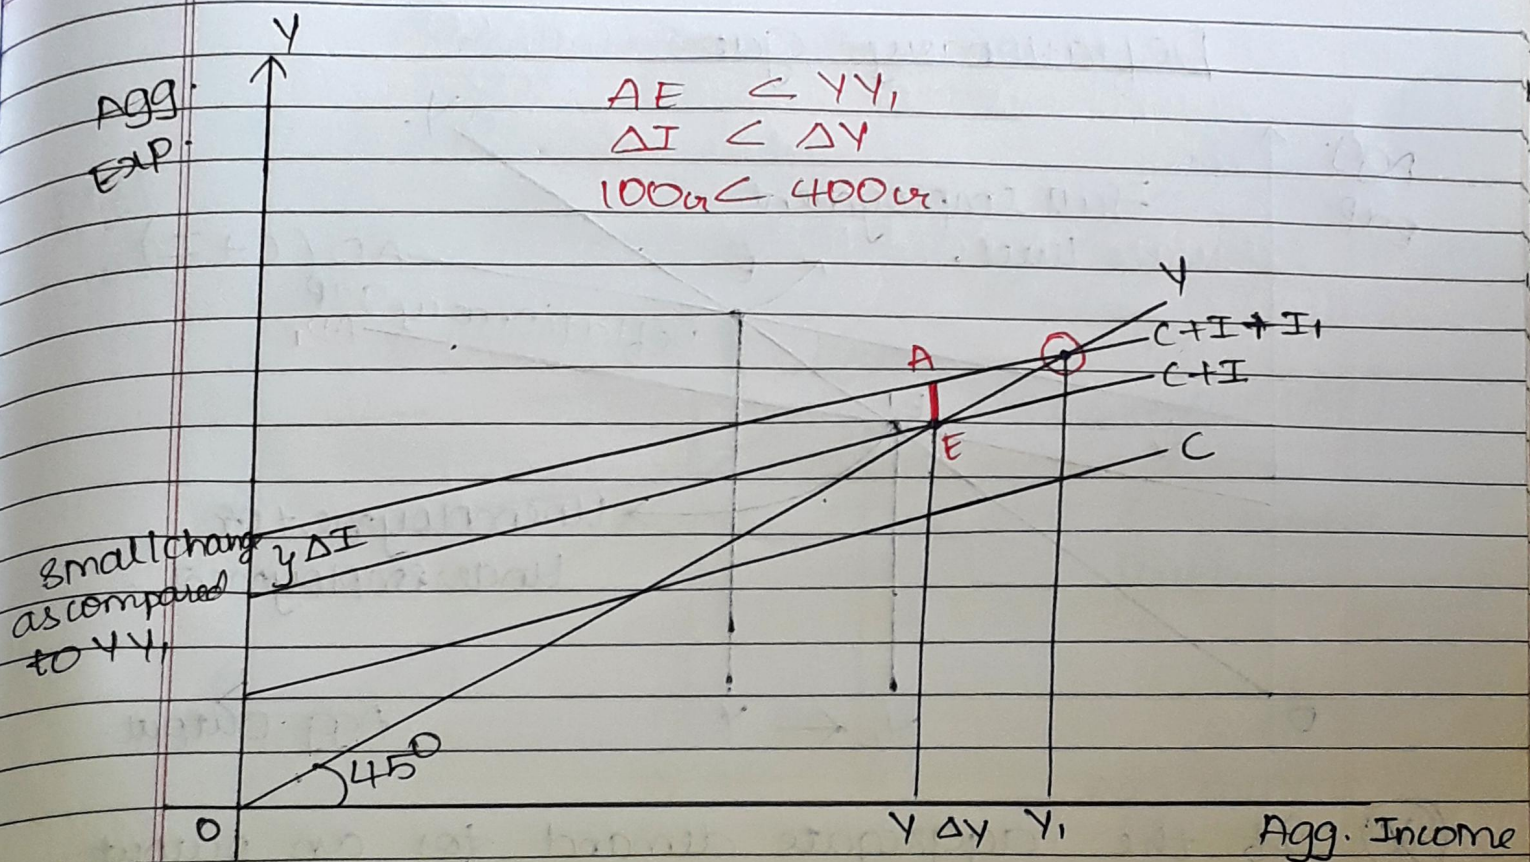 Y
Agg.
Exp.
AE < YY₁
ΔI < ΔY
100cr < 400cr
Y
C+I+I₁
C+I
C
A
E
small change
as compared
to YY₁
} ΔI
45°
O
Y ΔY Y₁
Agg. Income